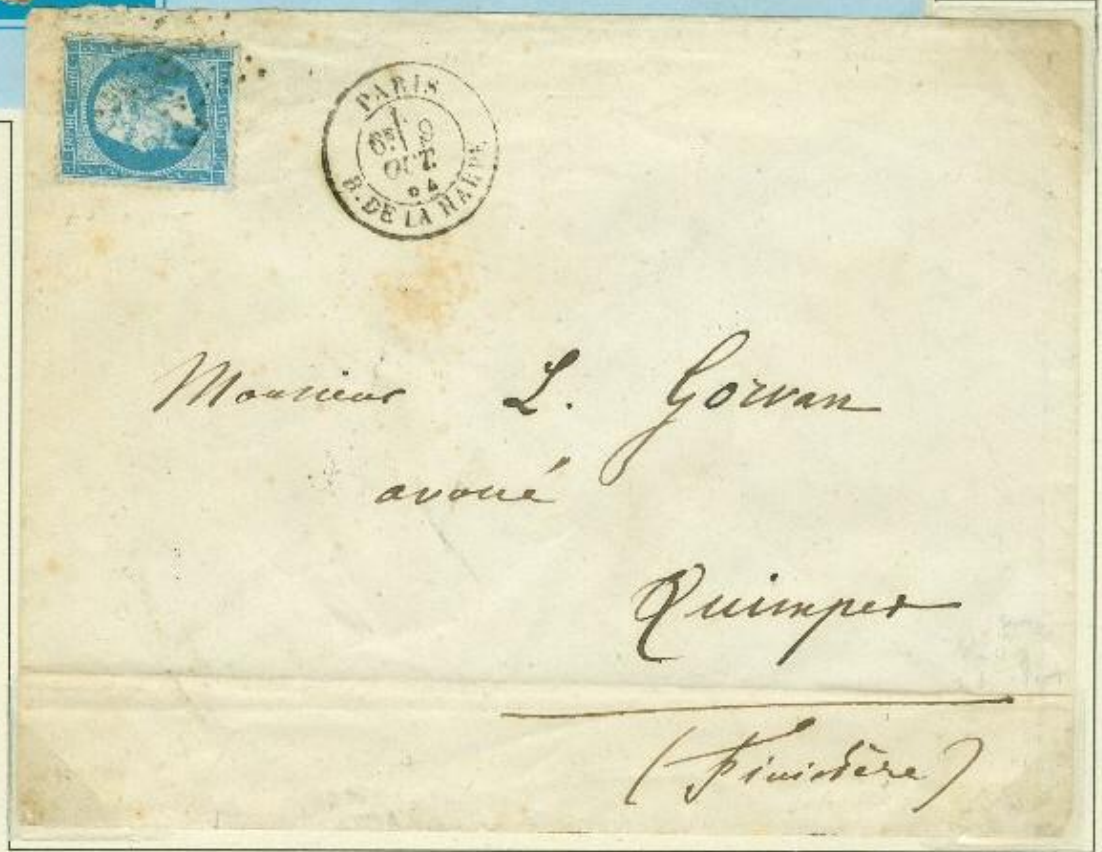 EMPIRE FRANC
PARIS
6E 9
OCT.
64
B. DE LA HARPE
Monsieur L. Gorvan
avoué
Quimper
(Finistère)